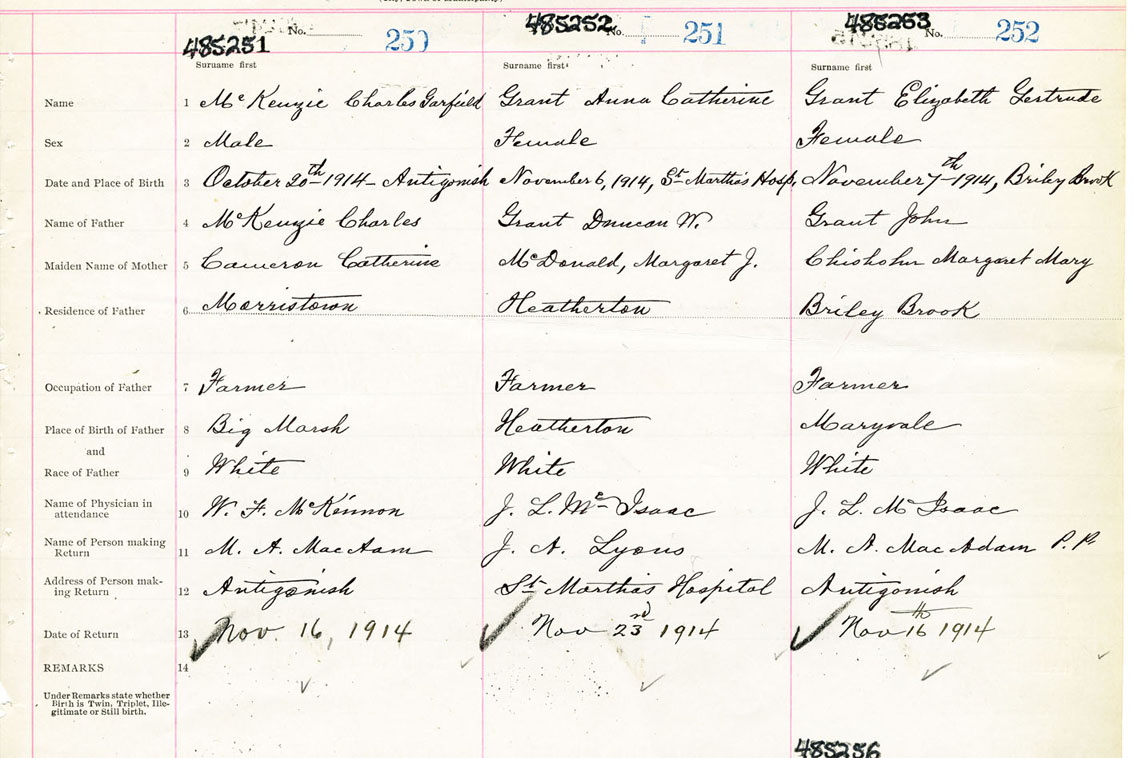 485251 No. 250 485252 No. 251 485253 No. 252
Surname first Surname first Surname first
Name 1 McKenzie Charles Garfield Grant Anna Catherine Grant Elizabeth Gertrude
Sex 2 Male Female Female
Date and Place of Birth 3 October 20th 1914 - Antigonish November 6, 1914, St. Martha's Hosp. November 7th 1914, Briley Brook
Name of Father 4 McKenzie Charles Grant Duncan W. Grant John
Maiden Name of Mother 5 Cameron Catherine McDonald, Margaret J. Chisholm Margaret Mary
Residence of Father 6 Morristown Heatherton Briley Brook
Occupation of Father 7 Farmer Farmer Farmer
Place of Birth of Father 8 Big Marsh Heatherton Maryvale
and
Race of Father 9 White White White
Name of Physician in
attendance 10 W. F. McKinnon J. L. McIsaac J. L. McIsaac
Name of Person making
Return 11 M. A. MacAdam J. A. Lyons M. A. MacAdam P. P.
Address of Person mak-
ing Return 12 Antigonish St. Martha's Hospital Antigonish
Date of Return 13 Nov. 16, 1914 Nov 23rd 1914 Nov 16th 1914
REMARKS 14
Under Remarks state whether
Birth is Twin, Triplet, Ille-
gitimate or Still birth.
485256